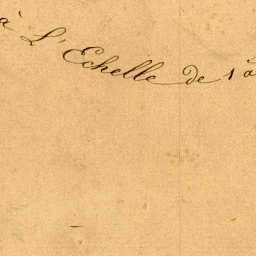 à L'Echelle de 1 a